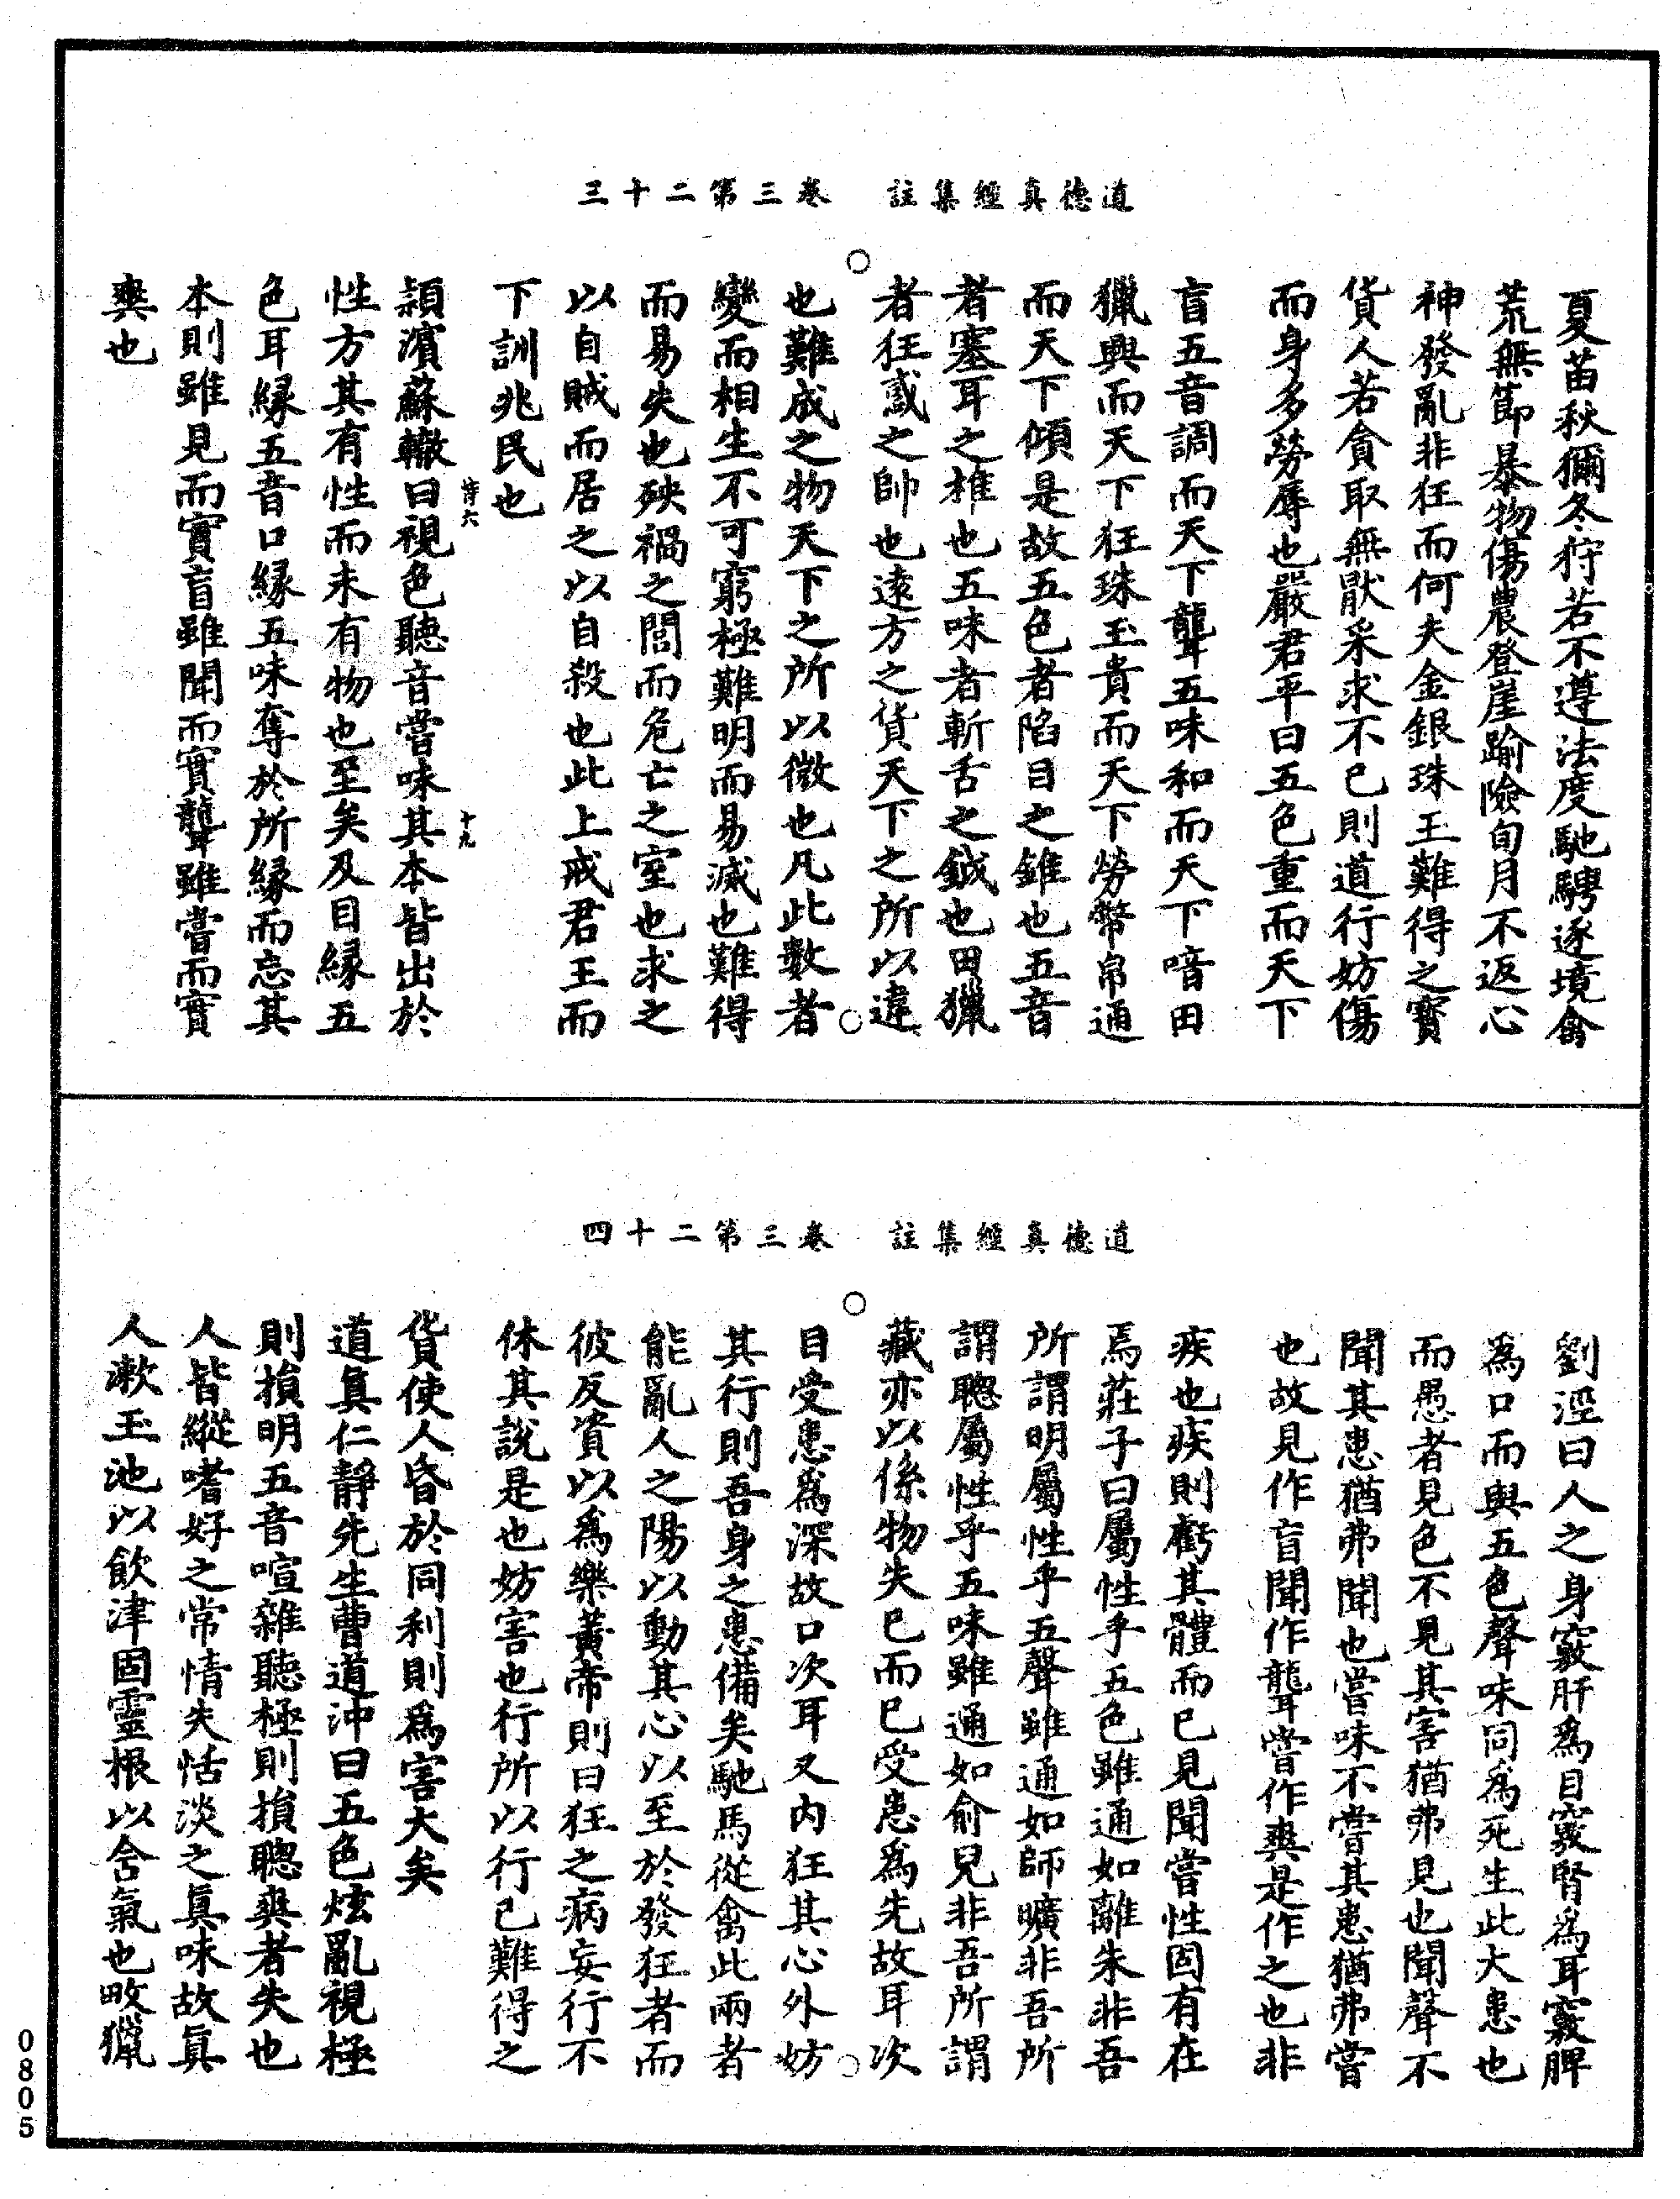 道德真經集註　卷三第二十三
夏苗秋獮冬狩若不遵法度馳騁逐境禽
荒無節暴物傷農登崖踰險旬月不返心
神發亂非狂而何夫金銀珠玉難得之寶
貨人若貪取無厭采求不已則道行妨傷
而身多勞辱也嚴君平曰五色重而天下
盲五音調而天下聾五味和而天下喑田
獵興而天下狂珠玉貴而天下勞幣帛通
而天下傾是故五色者陷目之錐也五音
者塞耳之椎也五味者斬舌之鉞也田獵
者狂惑之帥也遠方之貨天下之所以違
也難成之物天下之所以微也凡此數者
變而相生不可窮極難明而易滅也難得
而易失也殃禍之閭而危亡之室也求之
以自賊而居之以自殺也此上戒君王而
下訓兆民也
十九
潁濱蘇轍曰視色聽音嘗味其本皆出於
性方其有性而未有物也至矣及目緣五
色耳緣五音口緣五味奪於所緣而忘其
本則雖見而實盲雖聞而實聾雖嘗而實
爽也
道德真經集註　卷三第二十四
劉涇曰人之身竅肝為目竅腎為耳竅脾
為口而與五色聲味同為死生此大患也
而愚者見色不見其害猶弗見也聞聲不
聞其患猶弗聞也嘗味不嘗其患猶弗嘗
也故見作盲聞作聾嘗作爽是作之也非
疾也疾則虧其體而已見聞嘗性固有在
焉莊子曰屬性乎五色雖通如離朱非吾
所謂明屬性乎五聲雖通如師曠非吾所
謂聰屬性乎五味雖通如俞兒非吾所謂
臧亦以係物失已而已受患為先故耳次
目受患為深故口次耳又內狂其心外妨
其行則吾身之患備矣馳馬從禽此兩者
能亂人之陽以動其心以至於發狂者而
彼反資以為樂黃帝則曰狂之病妄行不
休其說是也妨害也行所以行已難得之
貨使人昏於同利則為害大矣
道真仁靜先生曹道沖曰五色炫亂視極
則損明五音喧雜聽極則損聰爽者失也
人皆縱嗜好之常情失恬淡之真味故真
人漱玉池以飲津固靈根以含氣也畋獵
0805